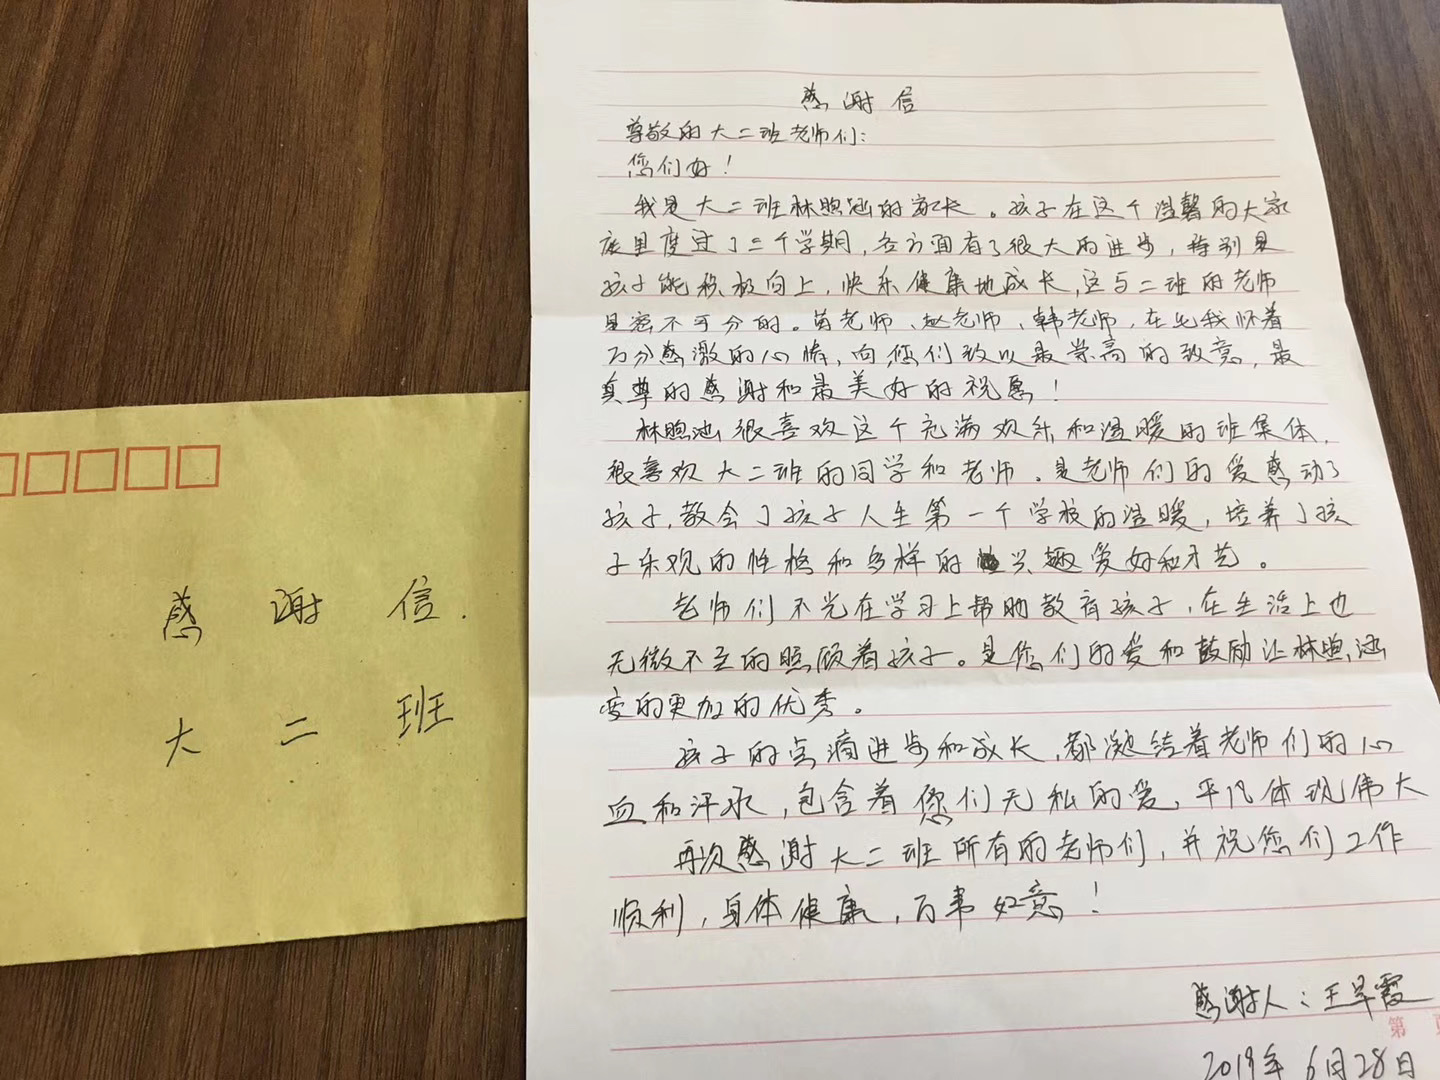 感谢信.
大二班
感谢信
尊敬的大二班老师们:
您们好!
我是大二班林煦涵的家长。孩子在这个温馨的大家
庭里度过了三个学期,各方面有了很大的进步,特别是
孩子能积极向上,快乐健康地成长,这与二班的老师
是密不可分的。苗老师、赵老师、韩老师,在此我怀着
万分感激的心情,向您们致以最崇高的致意,最
真尊的感谢和最美好的祝愿!
林煦涵很喜欢这个充满欢乐和温暖的班集体,
很喜欢大二班的同学和老师.是老师们的爱感动了
孩子,教会了孩子人生第一个学校的温暖,培养了孩
子乐观的性格和多样的兴趣爱好和才艺。
老师们不光在学习上帮助教育孩子,在生活上也
无微不至的照顾着孩子。是您们的爱和鼓励让林煦涵
变的更加的优秀。
孩子的点滴进步和成长,都凝结着老师们的心
血和汗水,包含着您们无私的爱,平凡体现伟大
再次感谢大二班所有的老师们,并祝您们工作
顺利,身体健康,万事如意!
感谢人:王早霞
第
2019年6月28日